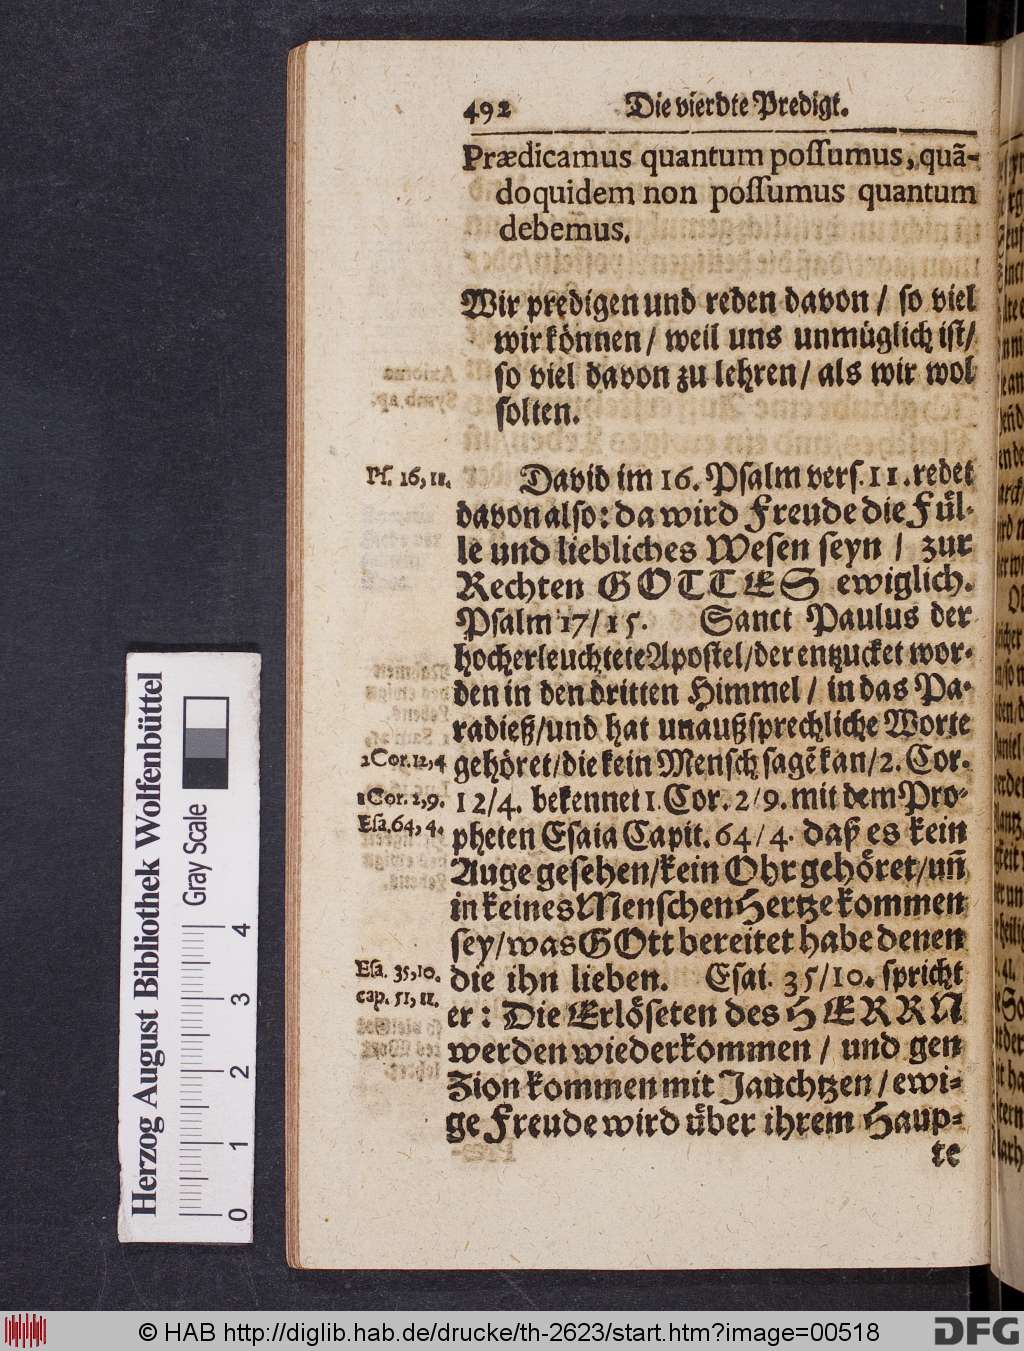 492 Die vierdte Predigt.
Prædicamus quantum possumus, quã-
doquidem non possumus quantum
debemus.
Wir predigen und reden davon / so viel
wir können / weil uns unmüglich ist/
so viel davon zu lehren / als wir wol
solten.
Ps. 16, 11. David im 16. Psalm vers. 11. redet
davon also: da wird Freude die Fül-
le und liebliches Wesen seyn / zur
Rechten GOTTES ewiglich.
Psalm 17/15. Sanct Paulus der
hocherleuchtete Apostel/der entzucket wor-
den in den dritten Himmel / in das Pa-
radieß/und hat unaußsprechliche Worte
2 Cor. 12, 4 gehöret/die kein Mensch sagẽ kan/2. Cor.
1 Cor. 2, 9. 12/4. bekennet 1. Cor. 2/9. mit dem Pro-
Esa. 64, 4. pheten Esaia Capit. 64/4. daß es kein
Auge gesehen/kein Ohr gehöret/uñ
in keines Menschen Hertze kommen
sey/was GOtt bereitet habe denen
Esa. 35, 10. die ihn lieben. Esai. 35/10. spricht
cap. 51, 11. er: Die Erlöseten des HERRN
werden wiederkommen / und gen
Zion kommen mit Jauchtzen / ewi-
ge Freude wird über ihrem Haup-
te
Herzog August Bibliothek Wolfenbüttel
Gray Scale
0 1 2 3 4
© HAB http://diglib.hab.de/drucke/th-2623/start.htm?image=00518
DFG